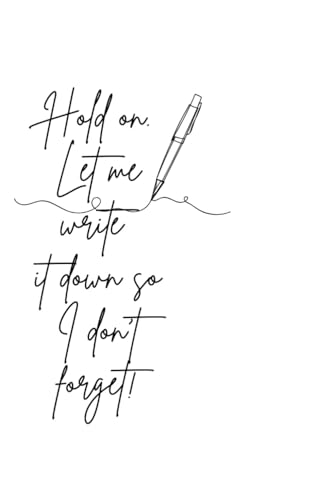 Hold on.
Let me
write
it down so
I don't
forget!